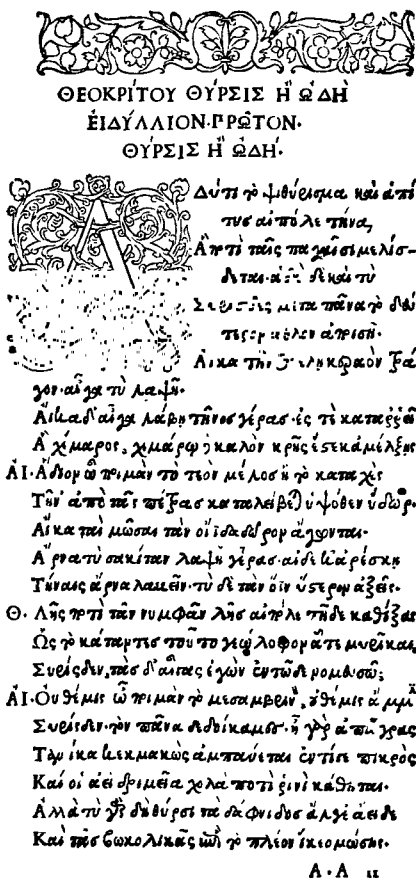 ΘΕΟΚΡΊΤΟΥ ΘΎΡΣΙΣ Ἢ ὨΔΉ
ἘΙΔΎΛΛΙΟΝ·ΠΡΩ͂ΤΟΝ·
ΘΎΡΣΙΣ Ἢ ὨΔΉ·
Α Δύτι τὸ ψιθύρισμα καὶ ἁ πί
τυς αἰπόλε τήνα,
Ἃ ποτὶ ταῖς παγαῖσι μελίσ-
δεται· ἁδὺ δὲ καὶ τὺ
Συρίσδες μετὰ πᾶνα τὸ δεύ
τερον ἆθλον ἀποισῆ·
Αἴκα τῆνος ἕλη κεραὸν τρά
γον· αἶγα τὺ λαψῆ·
Αἴκα δ' αἶγα λάβη τῆνος γέρας· ἐς τὲ καταρρεῖ
Ἁ χίμαρος· χιμάρω δὲ καλὸν κρῆς ἔστε κ' ἀμέλξης
ΑΙ· Ἅδιον ὦ ποιμὰν τὸ τεὸν μέλος ἢ τὸ καταχὲς
Τῆν' ἀπὸ τᾶς πέτρας καταλείβεται ὑψόθεν ὕδωρ·
Αἴκα ταὶ μῶσαι τὰν οἴϊδα δῶρον ἄγωνται·
Ἄρνα τὺ σακίταν λαψῆ γέρας· αἰ δέ κ' ἀρέσκη
Τήναις ἄρνα λαβεῖν· τὺ δὲ τὰν ὄϊν ὕστερον ἀξεῖς·
Θ· Λῆς ποτὶ τᾶν νυμφᾶν λῆς αἰπόλε τῆδε καθίξας
Ὡς τὸ κάταντες τοῦτο γεώλοφον ᾇτε μυρῖκαι,
Συρίσδεν, τὰς δ' αἶγας ἐγὼν ἐν τῶδε νομευσῶ;
ΑΙ· Οὐ θέμις ὦ ποιμὰν τὸ μεσαμβρινὸν, οὐ θέμις ἄμμιν
Συρίσδεν· τὸν πᾶνα δεδοίκαμες· ἦ γὰρ ἀπ' ἄγρας
Τανίκα κεκμακὼς ἀμπαύεται ἐντί γε πικρὸς
Καί οἱ ἀεὶ δριμεῖα χολὰ ποτὶ ῥινὶ κάθηται·
Ἀλλὰ τὺ γὰρ δὴ θύρσι τὰ δάφνιδος ἄλγε' ἄειδε
Καὶ τᾶς βωκολικᾶς ἐπὶ τὸ πλέον ἵκεο μώσης·
Α·Α ii